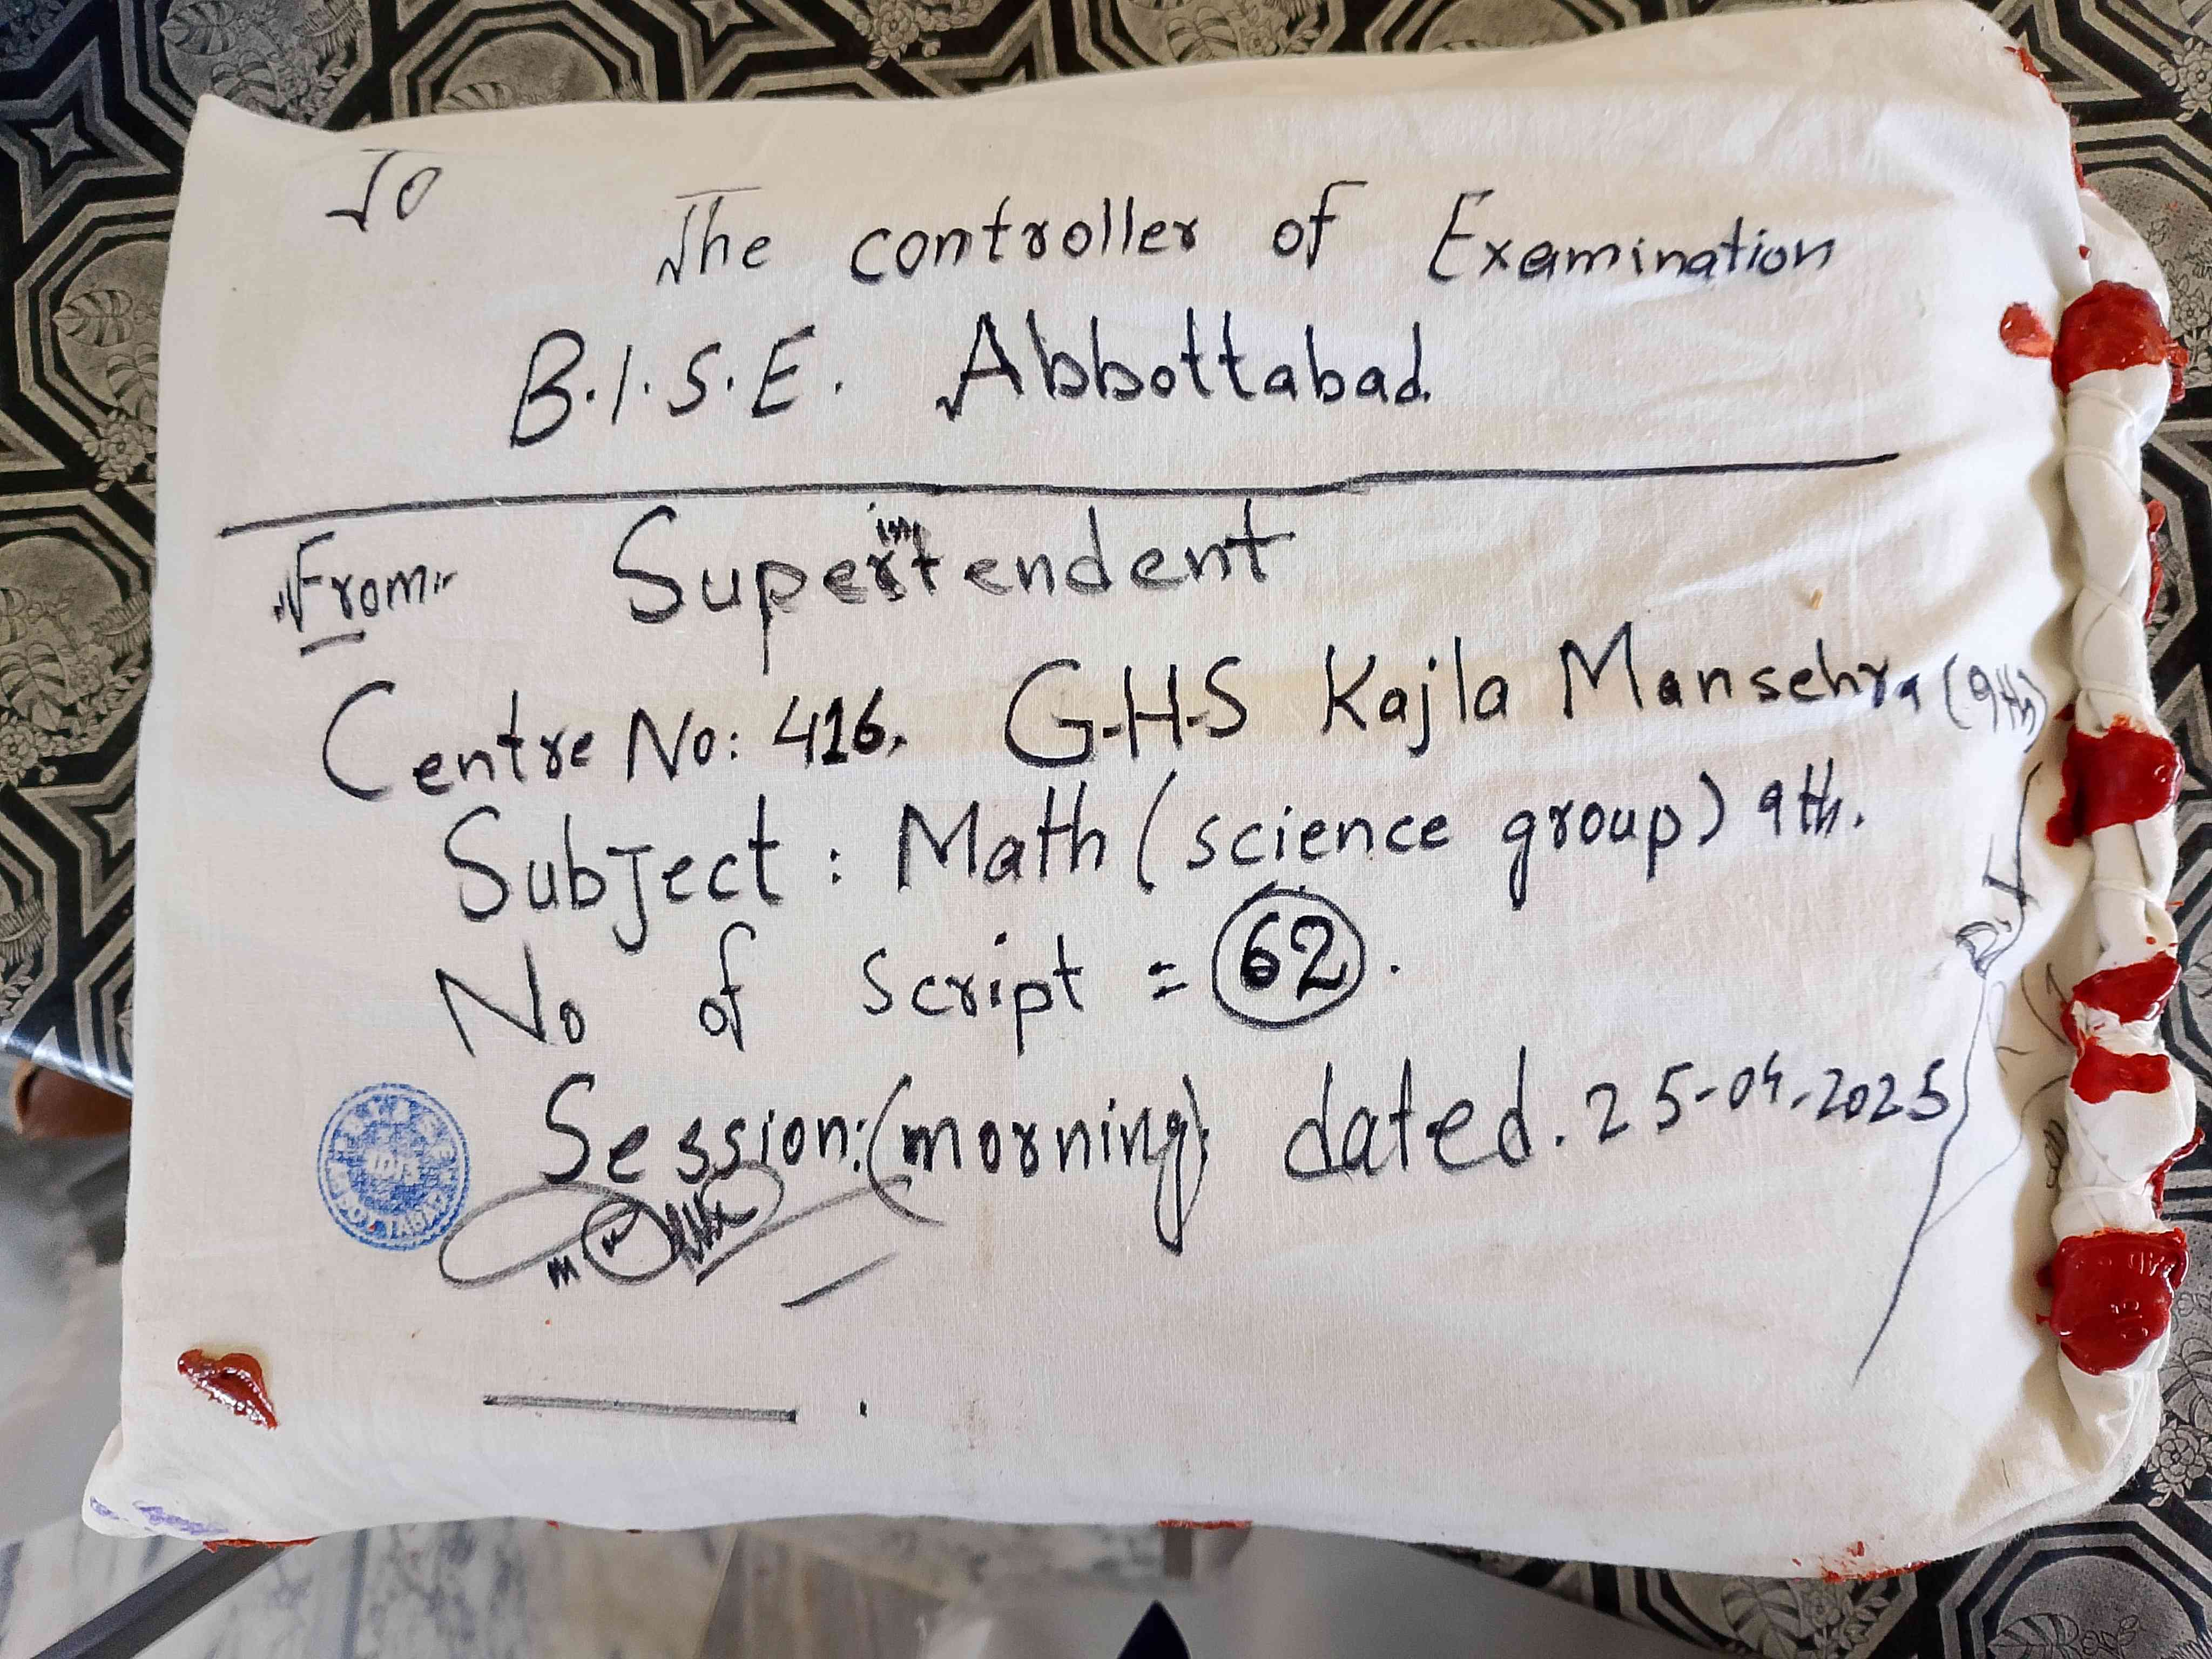 To
The controller of Examination
B.I.S.E. Abbottabad.
From Superintendent
Centre No: 416. G.H.S Kajla Mansehra (9th)
Subject: Math (science group) 9th.
No of script = 62.
Session: (morning) dated. 25-04-2025